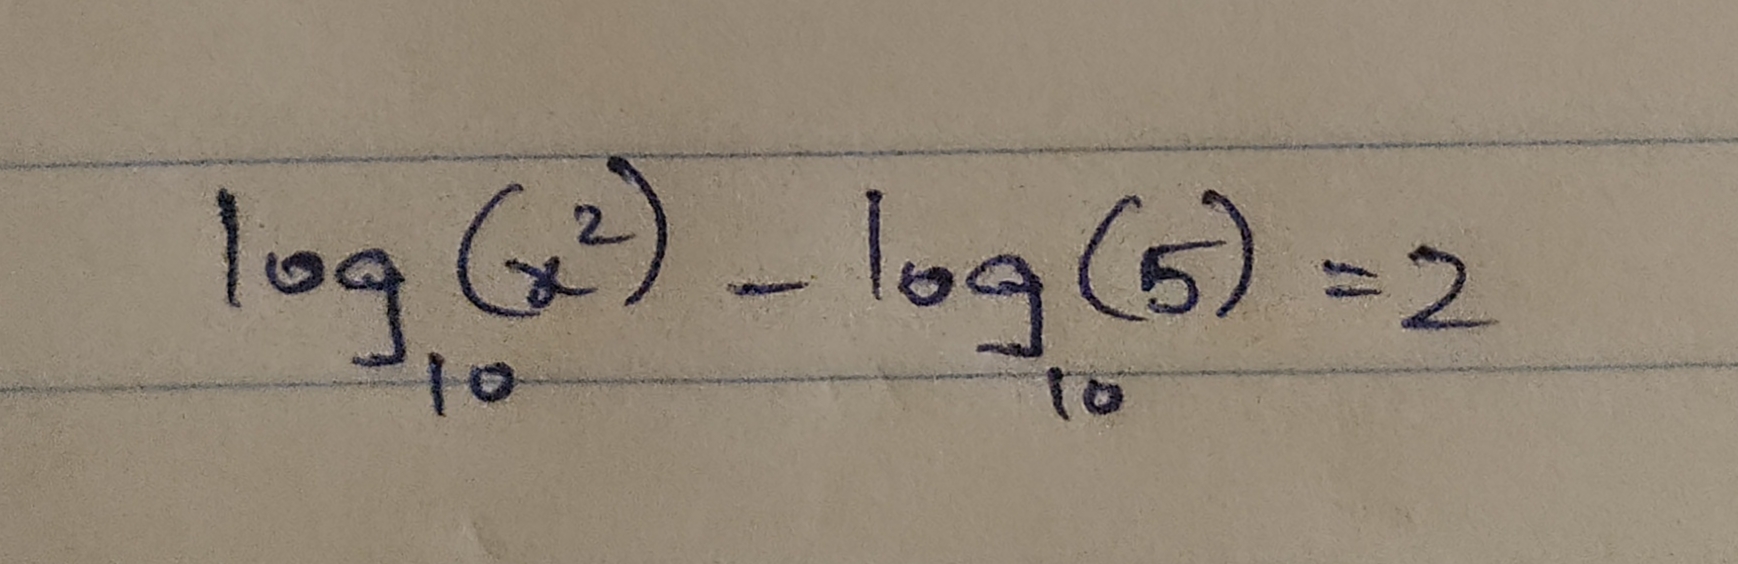 log₁₀(x²) - log₁₀(5) = 2